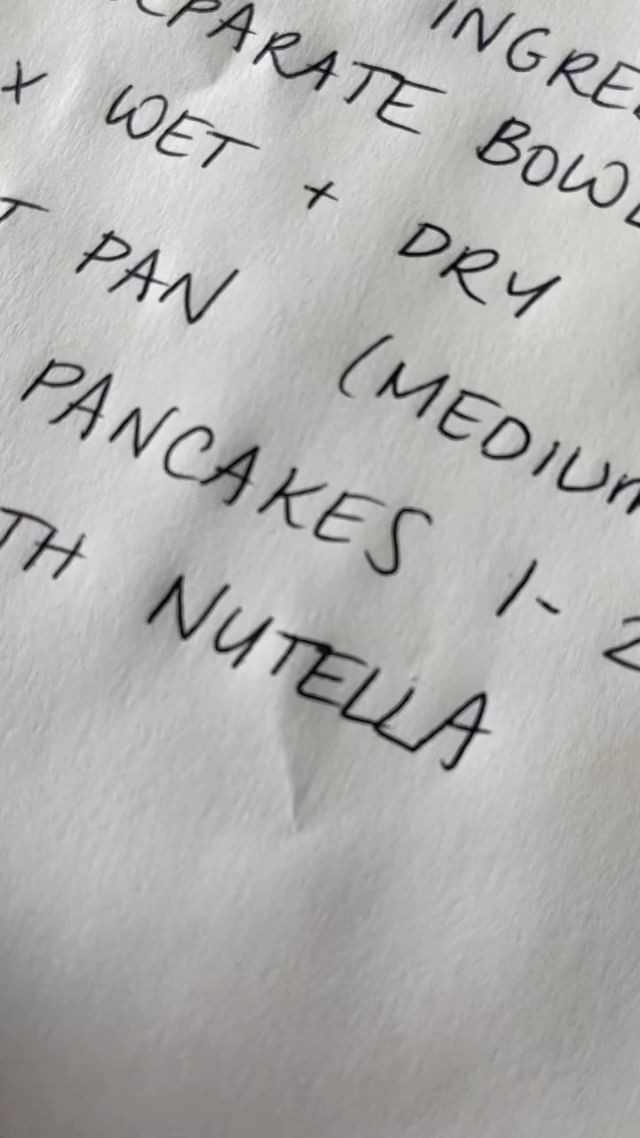 INGRE
EPARATE BOWL
X WET + DRY
T PAN (MEDIUM
PANCAKES 1-2
TH NUTELLA